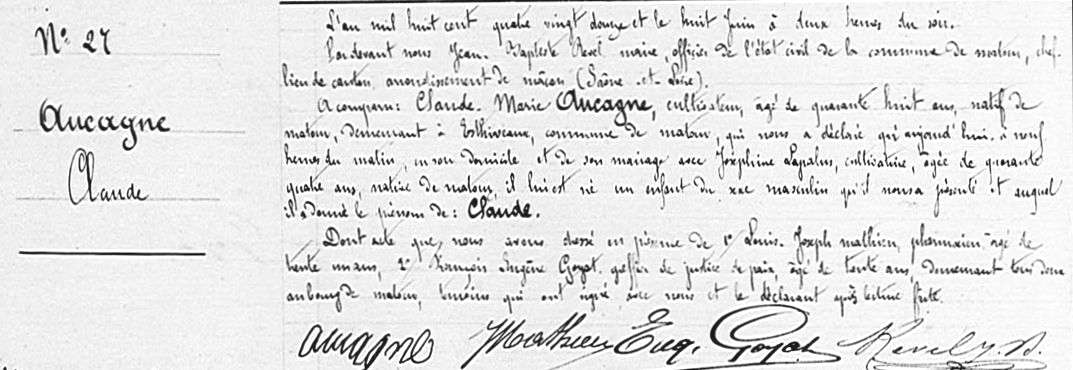 N° 27
Aucagne
Claude
L'an mil huit cent quatre vingt douze et le huit Juin à deux heures du soir.
Pardevant nous Jean-Baptiste Revel maire, officier de l'état civil de la commune de matour, chef-
lieu de canton, arrondissement de mâcon (Saône-et-Loire)
A comparu: Claude-Marie Aucagne, cultivateur, âgé de quarante huit ans, natif de
matour, demeurant à , commune de matour, qui nous a déclaré qu'aujourd'hui à neuf
heures du matin, en son domicile et de son mariage avec Joséphine Lapalus, cultivatrice, âgée de quarante
quatre ans, native de matour, il lui est né un enfant du sexe masculin qu'il nous a présenté et auquel
il a donné le prénom de: Claude.
Dont acte que nous avons dressé en présence de 1° Louis-Joseph mathieu, pharmacien, âgé de
trente un ans, 2° François Eugène Goyat, greffier de justice de paix, âgé de trente ans, demeurant tous deux
au bourg de matour, témoins qui ont signé avec nous et le déclarant après lecture faite.
Aucagne Mathieu Eug. Goyat Revel J. B.